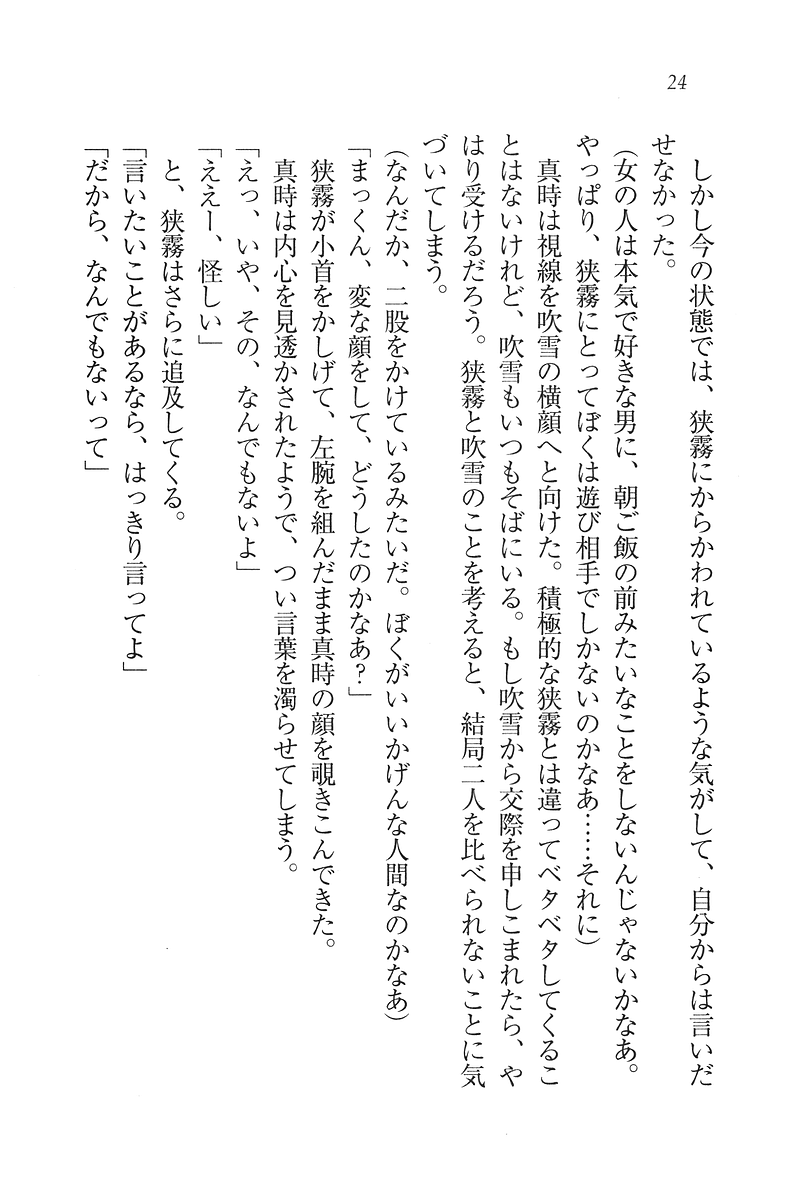 24
しかし今の状態では、狭霧にからかわれているような気がして、自分からは言いだ
せなかった。
（女の人は本気で好きな男に、朝ご飯の前みたいなことをしないんじゃないかなあ。
やっぱり、狭霧にとってぼくは遊び相手でしかないのかなあ……それに）
真時は視線を吹雪の横顔へと向けた。積極的な狭霧とは違ってベタベタしてくるこ
とはないけれど、吹雪もいつもそばにいる。もし吹雪から交際を申しこまれたら、や
はり受けるだろう。狭霧と吹雪のことを考えると、結局二人を比べられないことに気
づいてしまう。
（なんだか、二股をかけているみたいだ。ぼくがいいかげんな人間なのかなあ）
「まっくん、変な顔をして、どうしたのかなあ？」
狭霧が小首をかしげて、左腕を組んだまま真時の顔を覗きこんできた。
真時は内心を見透かされたようで、つい言葉を濁らせてしまう。
「えっ、いや、その、なんでもないよ」
「ええー、怪しい」
と、狭霧はさらに追及してくる。
「言いたいことがあるなら、はっきり言ってよ」
「だから、なんでもないって」